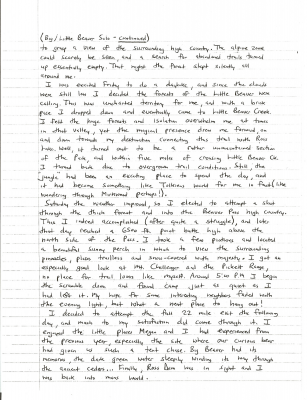 (Big / Little Beaver Solo - continued)
to grasp a view of the surrounding high country. The alpine zone
could scarcely be seen, and a search for additional trails turned
up essentially empty. That night the forest slept silently all
around me.
I was excited Friday to do a dayhike, and since the clouds
were still low I decided the forests of the Little Beaver were
calling. This was uncharted territory for me, and with a brisk
pace I dropped down and eventually came to Little Beaver Creek.
I felt the huge forests and isolation overwhelm me at times
in that valley, yet the magical presence drew me forward on
and down towards my destination connecting this trail with Ross
two. Well, it turned out to be a rather unmaintained section
of the Park, and within five miles of crossing Little Beaver Cr.
I turned back due to overgrown trail conditions. Still, the
jungle had been an exciting place to spend the day, and
it had become something like Tolkien's world for me in fact (the
wandering through Mirkwood perhaps!).
Saturday the weather improved, so I elected to attempt a shot
through the thick forest and into the Beaver Pass high country.
This I indeed accomplished (after quite a struggle), and later
that day reached a 6500 ft. point battle high above the
north side of the Pass. I took a few photos and located
a beautiful sunny perch in which to view the surrounding
pinnacles, places trailless and snow-covered with majesty. I got an
especially good look at Mt. Challenger and the Pickett Range,
no place for trail lovers like myself. Around 5:00 PM I began
the scramble down and found camp just as quiet as I
had left it. My hope for some interesting neighbors faded with
the evening light, but what a neat place to hang out!
I decided to attempt the full 22 mile exit the following
day, and much to my satisfaction did come through it. I
enjoyed the little places Megan and I had experienced from
the previous year, especially the site where our curious bear
had given us such a tent chase. Big Beaver had its
memories, the dark green water sleepily winding its way through
the ancient cedars... Finally, Ross Dam was in sight and I
was back into man's world.